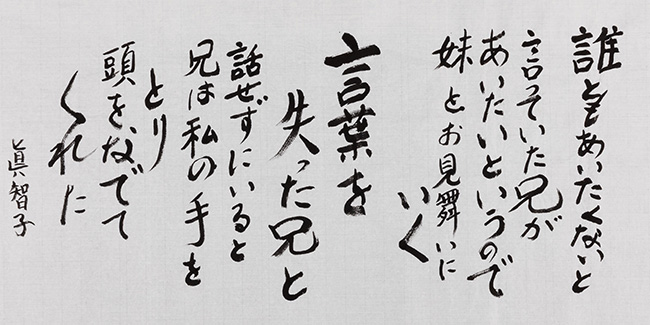 誰ともあいたくないと
言っていた兄が
あいたいというので
妹とお見舞いに
いく
言葉を
失った兄と
話せずにいると
兄は私の手を
とり
頭を、なでて
くれた
眞智子